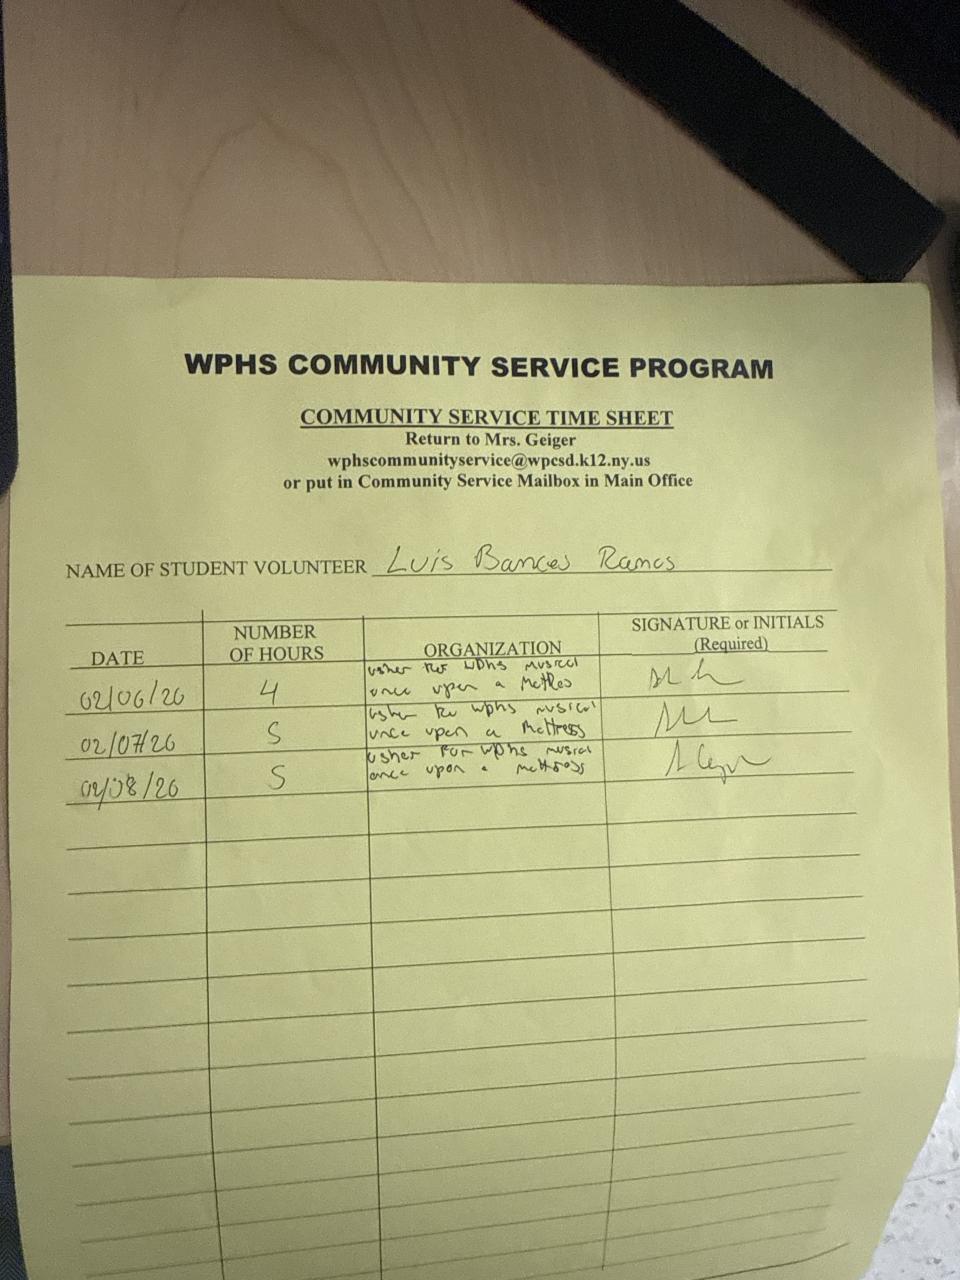 WPHS COMMUNITY SERVICE PROGRAM
COMMUNITY SERVICE TIME SHEET
Return to Mrs. Geiger
wphscommunityservice@wpcsd.k12.ny.us
or put in Community Service Mailbox in Main Office
NAME OF STUDENT VOLUNTEER Luis Bances Ramos
DATE NUMBER OF HOURS ORGANIZATION SIGNATURE or INITIALS (Required)
02/06/26 4 usher for wphs musical
once upon a
02/07/26 5 usher for wphs musical
once upon a mattress
02/08/26 5 usher for wphs musical
once upon a mattress